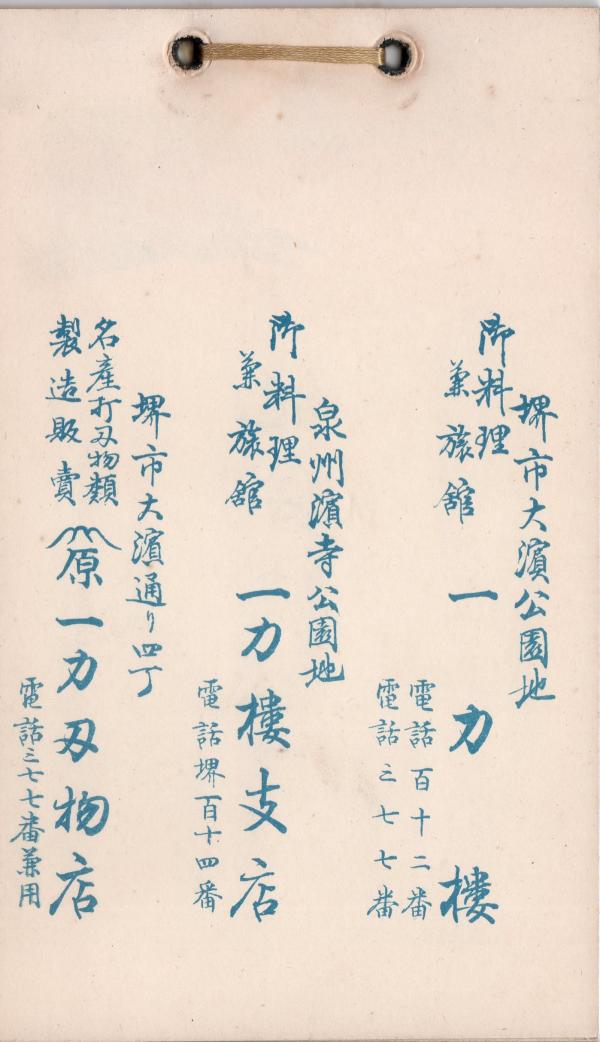 堺市大濱公園地
御料理
兼旅舘
一力樓
電話百十二番
電話三七七番
泉州濱寺公園地
御料理
兼旅舘
一力樓支店
電話堺百十四番
堺市大濱通り四丁
名產打刃物類
製造販賣
原一力刃物店
電話三七七番兼用